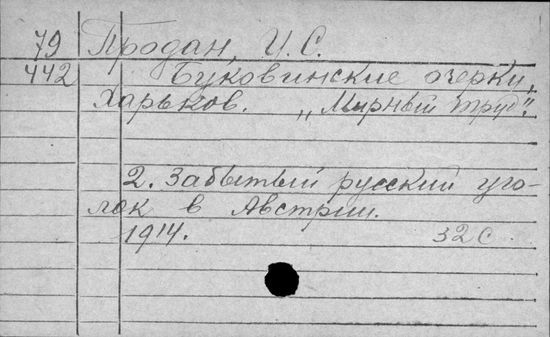 79 Продан, И. С.
442 Буковинские очерки,
Харьков. „Мирный труд“.
2. Забытый русский уго-
лок в Австрии.
1914. 32 с